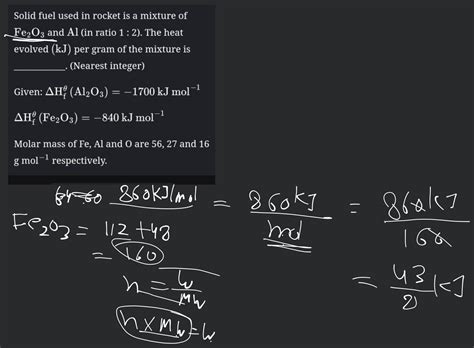 Solid fuel used in rocket is a mixture of
Fe₂O₃ and Al (in ratio 1 : 2). The heat
evolved (kJ) per gram of the mixture is
__________. (Nearest integer)
Given: ΔH_f^θ (Al₂O₃) = −1700 kJ mol⁻¹
ΔH_f^θ (Fe₂O₃) = −840 kJ mol⁻¹
Molar mass of Fe, Al and O are 56, 27 and 16
g mol⁻¹ respectively.
860kJ/mol = 860kJ/mol = 860kJ/160
Fe₂O₃ = 112 + 48
= 160
= 43/8 kJ
n = w/Mw
n x Mw = w